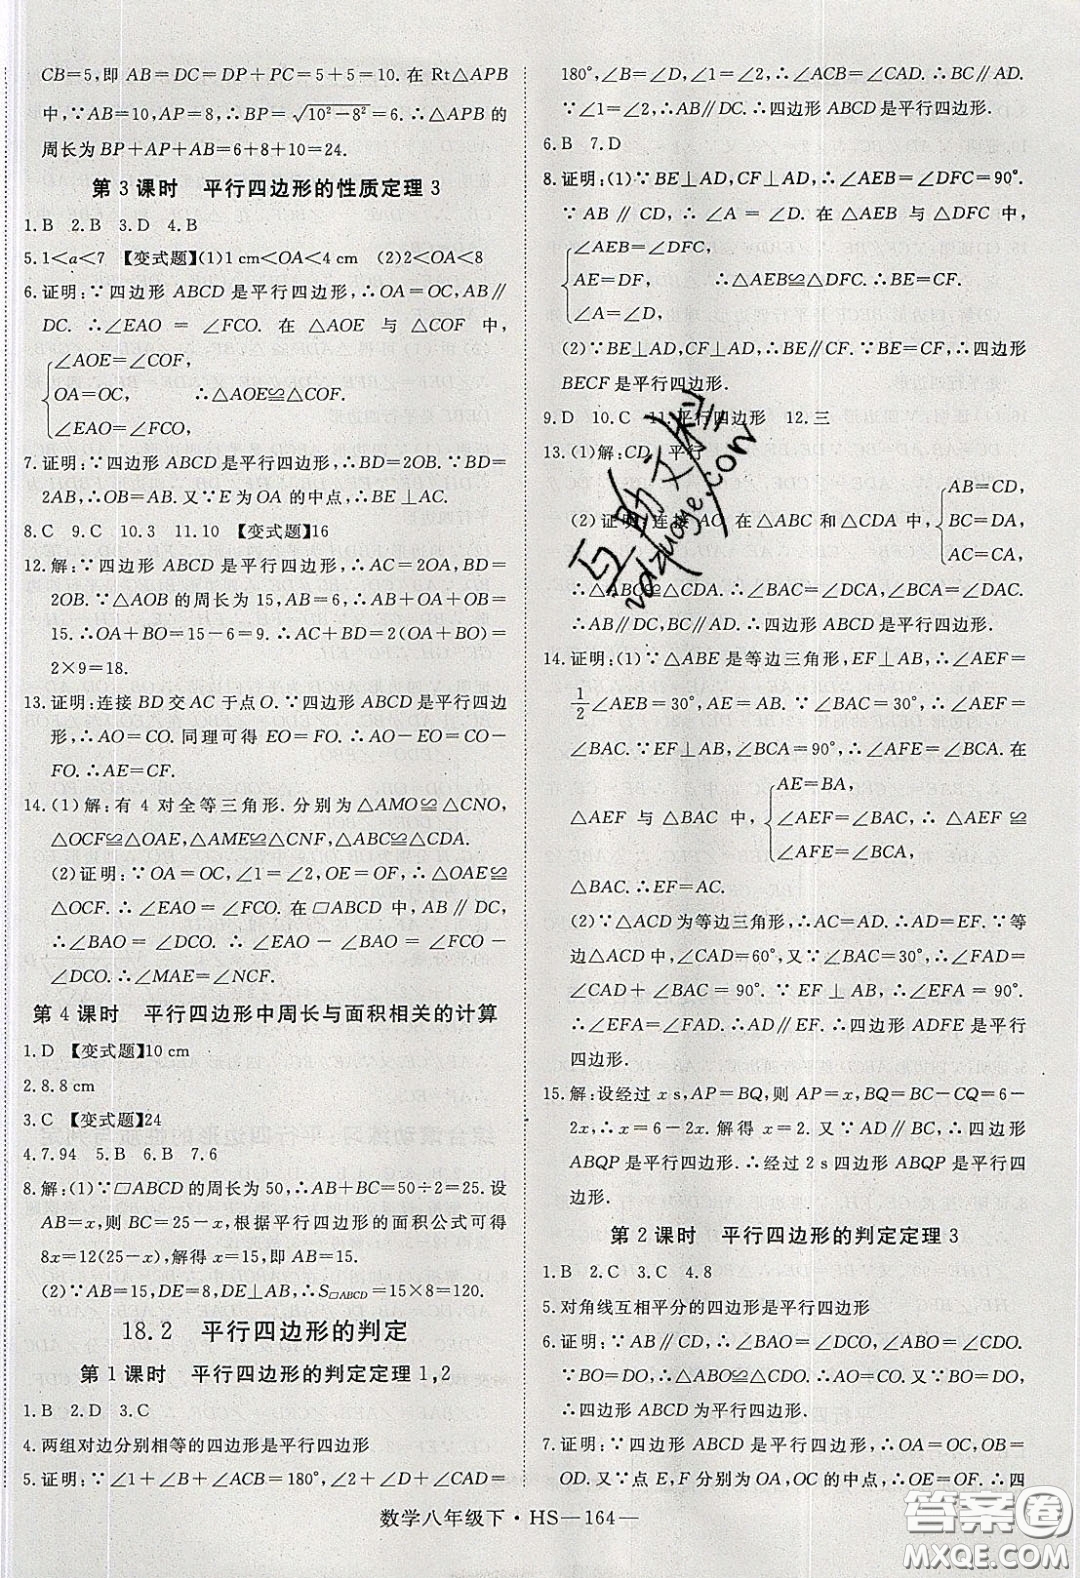 CB=5,即 AB=DC=DP+PC=5+5=10. 在 Rt△APB
中,∵AB=10,AP=8,∴BP=√(10²-8²)=6.∴△APB 的
周长为 BP+AP+AB=6+8+10=24.
第 3 课时　平行四边形的性质定理 3
1.B　2.B　3.D　4.B
5.1<a<7　【变式题】(1)1 cm<OA<4 cm　(2)2<OA<8
6.证明:∵四边形 ABCD 是平行四边形,∴OA=OC,AB∥
DC. ∴∠EAO = ∠FCO. 在 △AOE 与 △COF 中,
∠AOE=∠COF,
OA=OC,　　∴△AOE≌△COF.
∠EAO=∠FCO,
7.证明:∵四边形 ABCD 是平行四边形,∴BD=2OB.∵BD=
2AB,∴OB=AB. 又∵E为 OA 的中点,∴BE⊥AC.
8.C　9.C　10.3　11.10　【变式题】16
12.解:∵四边形 ABCD 是平行四边形,∴AC=2OA,BD=
2OB.∵△AOB 的周长为 15,AB=6,∴OA+OB+AB=
15.∴OA+BO=15-6=9.∴AC+BD=2(OA+BO)=
2×9=18.
13.证明:连接 BD 交 AC 于点 O.∵四边形 ABCD 是平行四边
形,∴AO=CO. 同理可得 EO=FO.∴AO-EO=CO-
FO.∴AE=CF.
14.(1)解:有 4 对全等三角形. 分别为 △AMO≌△CNO,
△OCF≌△OAE,△AME≌△CNF,△ABC≌△CDA.
(2)证明:∵OA=OC,∠1=∠2,OE=OF,∴△OAE≌
△OCF.∴∠EAO=∠FCO. 在▱ABCD 中,AB∥DC,
∴∠BAO = ∠DCO. ∴∠EAO - ∠BAO = ∠FCO -
∠DCO.∴∠MAE=∠NCF.
第 4 课时　平行四边形中周长与面积相关的计算
1.D　【变式题】10 cm
2.8.8 cm
3.C　【变式题】24
4.7.94　5.B　6.B　7.6
8.解:(1)∵▱ABCD 的周长为 50,∴AB+BC=50÷2=25. 设
AB=x,则 BC=25-x,根据平行四边形的面积公式可得
8x=12(25-x),解得 x=15,即 AB=15.
(2)∵AB=15,DE=8,DE⊥AB,∴S▱ABCD=15×8=120.
18.2　平行四边形的判定
第 1 课时　平行四边形的判定定理 1,2
1.B　2.D　3.C
4.两组对边分别相等的四边形是平行四边形
5.证明:∵∠1+∠B+∠ACB=180°,∠2+∠D+∠CAD=
180°,∠B=∠D,∠1=∠2,∴∠ACB=∠CAD.∴BC∥AD.
∵∠1=∠2,∴AB∥DC.∴四边形 ABCD 是平行四边形.
6.B　7.D
8.证明:(1)∵BE⊥AD,CF⊥AD,∴∠AEB=∠DFC=90°.
∵AB∥CD,∴∠A=∠D. 在 △AEB 与 △DFC 中,
∠AEB=∠DFC,
AE=DF,　　∴△AEB≌△DFC.
∠A=∠D,
(2)∵BE⊥AD,CF⊥AD,∴BE∥CF.∵BE=CF,∴四边形
BECF 是平行四边形.
9.D　10.C　11.平行四边形　12.三
13.(1)解:CD　平行
(2)证明:连接 AC. 在 △ABC 和△CDA 中,
AB=CD,
BC=DA,
AC=CA,
∴△ABC≌△CDA. ∴∠BAC=∠DCA,∠ACB=∠CAD.
∴AB∥DC,BC∥AD.∴四边形 ABCD 是平行四边形.
14.证明:(1)∵△ABE 是等边三角形,EF⊥AB,∴∠AEF=
1/2∠AEB=30°,AE=AB.∵∠BAC=30°,∴∠AEF=
∠BAC. ∵EF⊥AB,∠BCA=90°,∴∠AFE=∠BCA. 在
△AEF 与 △BAC 中,
AE=BA,
∠AEF=∠BAC,　∴△AEF≌
∠AFE=∠BCA,
△BAC.∴EF=AC.
(2)∵△ACD 为等边三角形,∴AC=AD.∴AD=EF.∵等
边△ACD 中,∠CAD=60°,又∵∠BAC=30°,∴∠FAD=
∠BAC + ∠CAD = 90°. ∵ EF ⊥ AB, ∴∠EFA = 90°.
∴∠EFA=∠FAD. ∴AD∥EF. ∴四边形 ADFE 是平行
四边形.
15.解:设经过 x s,AP=BQ,则 AP=x,BQ=BC-CQ=6-
2x,∴x=6-2x.∴x=2. 又∵AD∥BC,即 AP∥BQ,∴四边形
ABQP 是平行四边形,即经过 2 s 四边形 ABQP 是平行四
边形.
第 2 课时　平行四边形的判定定理 3
1.B　2.C　3.C　4.8
5.对角线互相平分的四边形是平行四边形
6.证明:∵AB∥CD,∴∠ABO=∠CDO. 又∵BO=DO,
∠AOB=∠COD,∴△ABO≌△CDO.∴AO=CO.
又∵BO=DO,∴四边形 ABCD 为平行四边形.
7.证明:∵四边形 ABCD 是平行四边形,∴OA=OC,OB=
OD. 又∵点 E,F 分别为 OA,OC 的中点,∴OE=OF.∴四
数学八年级下·HS—164—
互助文档
vdzuoye.con
答案圈
MXQE.COM